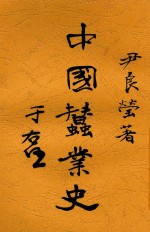 尹良瑩著
中國蠶業史
于右任